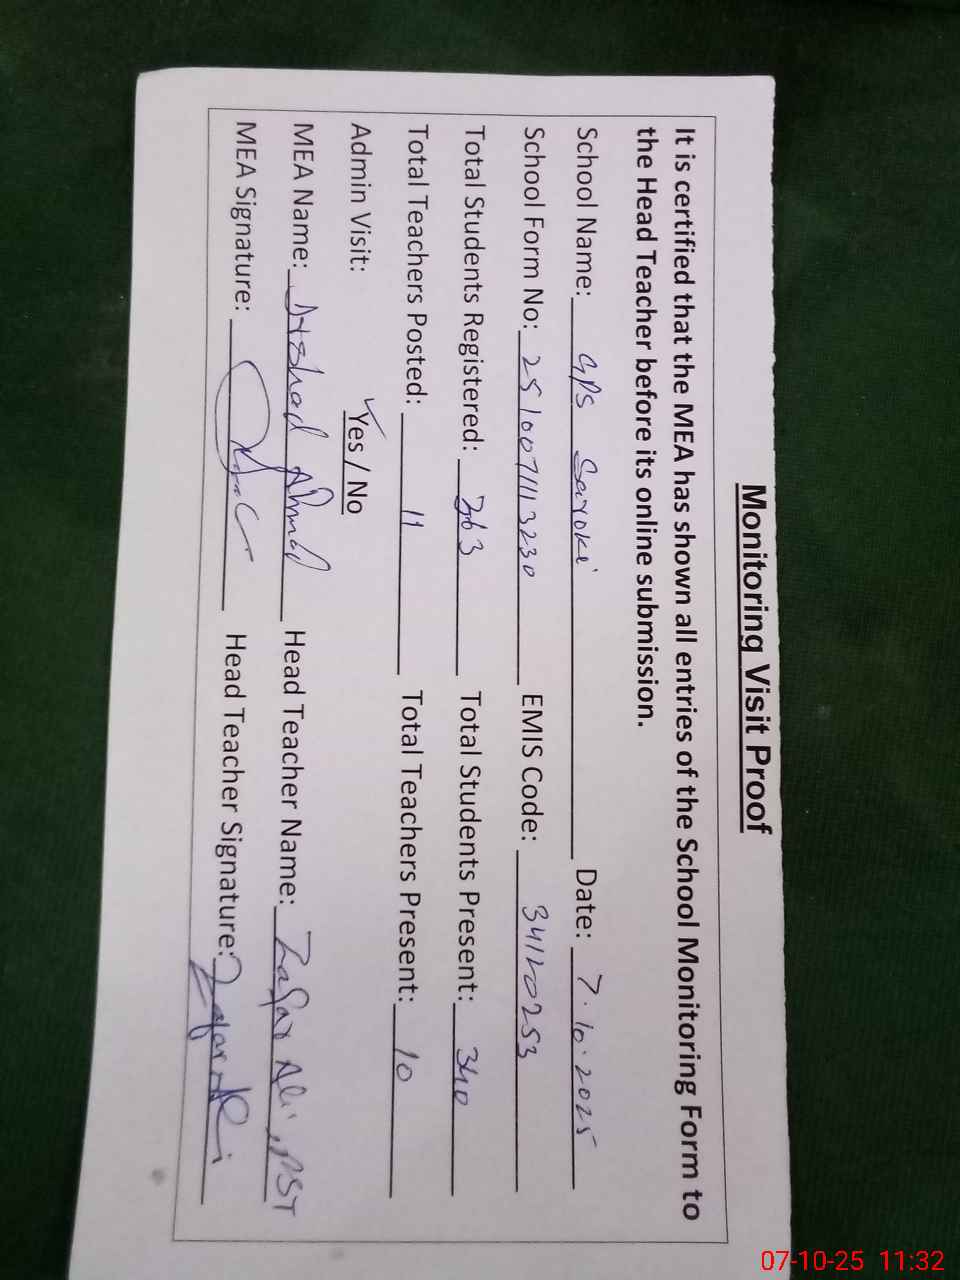 Monitoring Visit Proof
It is certified that the MEA has shown all entries of the School Monitoring Form to
the Head Teacher before its online submission.
School Name: GPS Saroki Date: 7.10.2025
School Form No: 2510071113230 EMIS Code: 34120253
Total Students Registered: 363 Total Students Present: 340
Total Teachers Posted: 11 Total Teachers Present: 10
Admin Visit: Yes / No
MEA Name: Ahmad Head Teacher Name: Zafar Ali, PST
MEA Signature: Head Teacher Signature: Zafar Ali
07-10-25 11:32